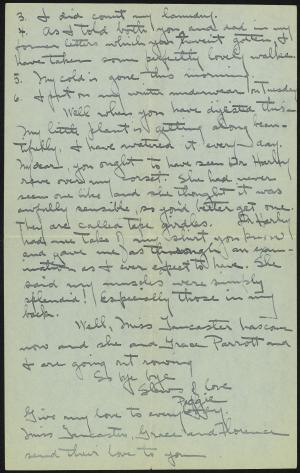 3. I did count my laundry.
4. As I told both you and dad in my
former letters which you haven't gotten, I
have taken some perfectly lovely walks.
5. My cold is gone this morning.
6. I put on my winter underwear on Tuesday
Well when you have digested this—
My little plant is getting along beau-
tifully. I have watered it every day.
My dear, you ought to have seen Dr. Hardy
rave over my corset. She had never
seen one like and she thought it was
awfully sensible, so you'd better get one.
They are called tape girdles. Dr. Hardy
had me take off my shirt you
and gave me as thorough an exam-
ination as I ever expect to have. She
said my muscles were simply
splendid! Especially those in my
back.
Well, Miss Lancaster has come
now and she and Grace Parrott and
I are going out rowing
So bye bye
Slews of love
Peggie
Give my love to every
Miss Lancaster, Grace and Florence
send their love to you